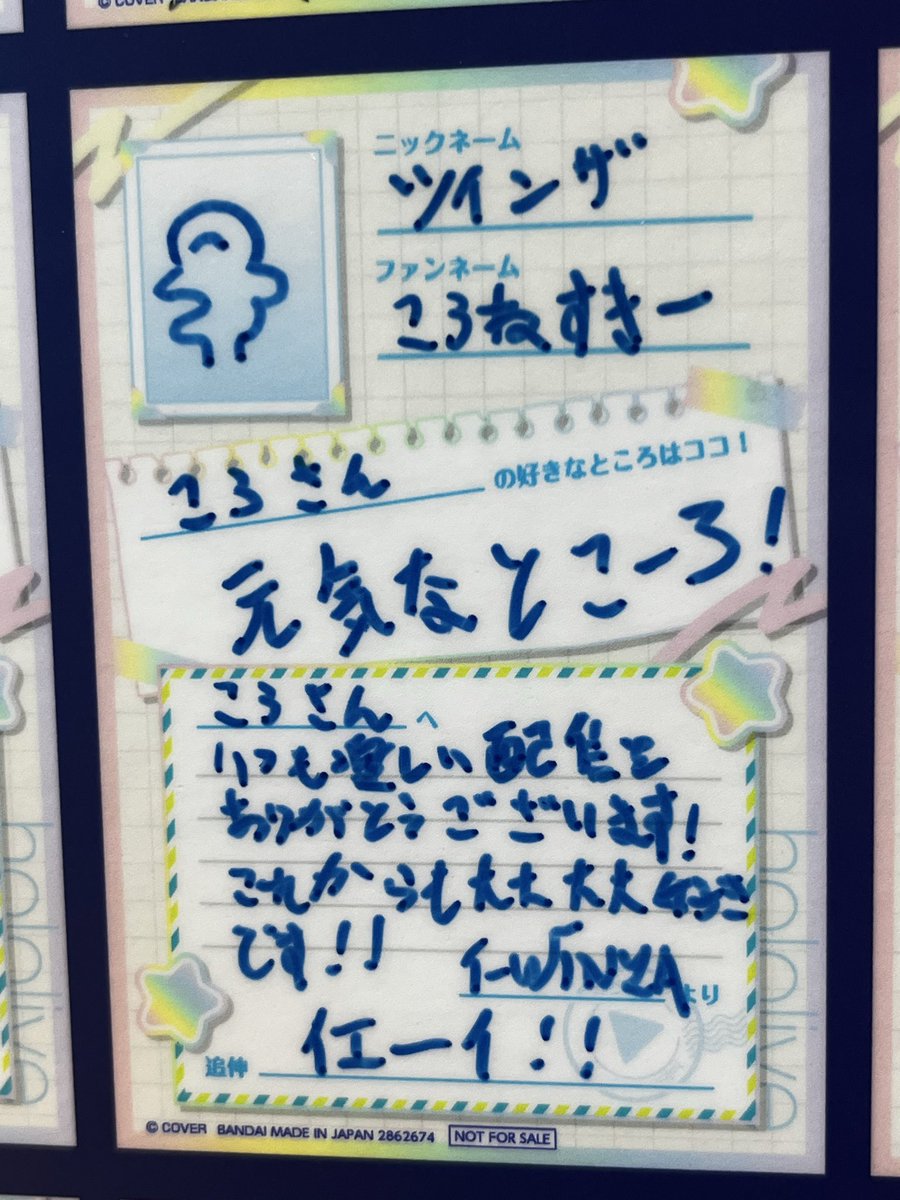 © COVER
ニックネーム
ツインザ
ファンネーム
ころねすきー
ころさんの好きなところはココ!
元気なところーろ!
ころさんへ
いつも楽しい配信を
ありがとうございます!
これからも大大大大好き
です!!
より
追伸 イエーイ!!
hololive
hololive
© COVER BANDAI MADE IN JAPAN 2862674 NOT FOR SALE